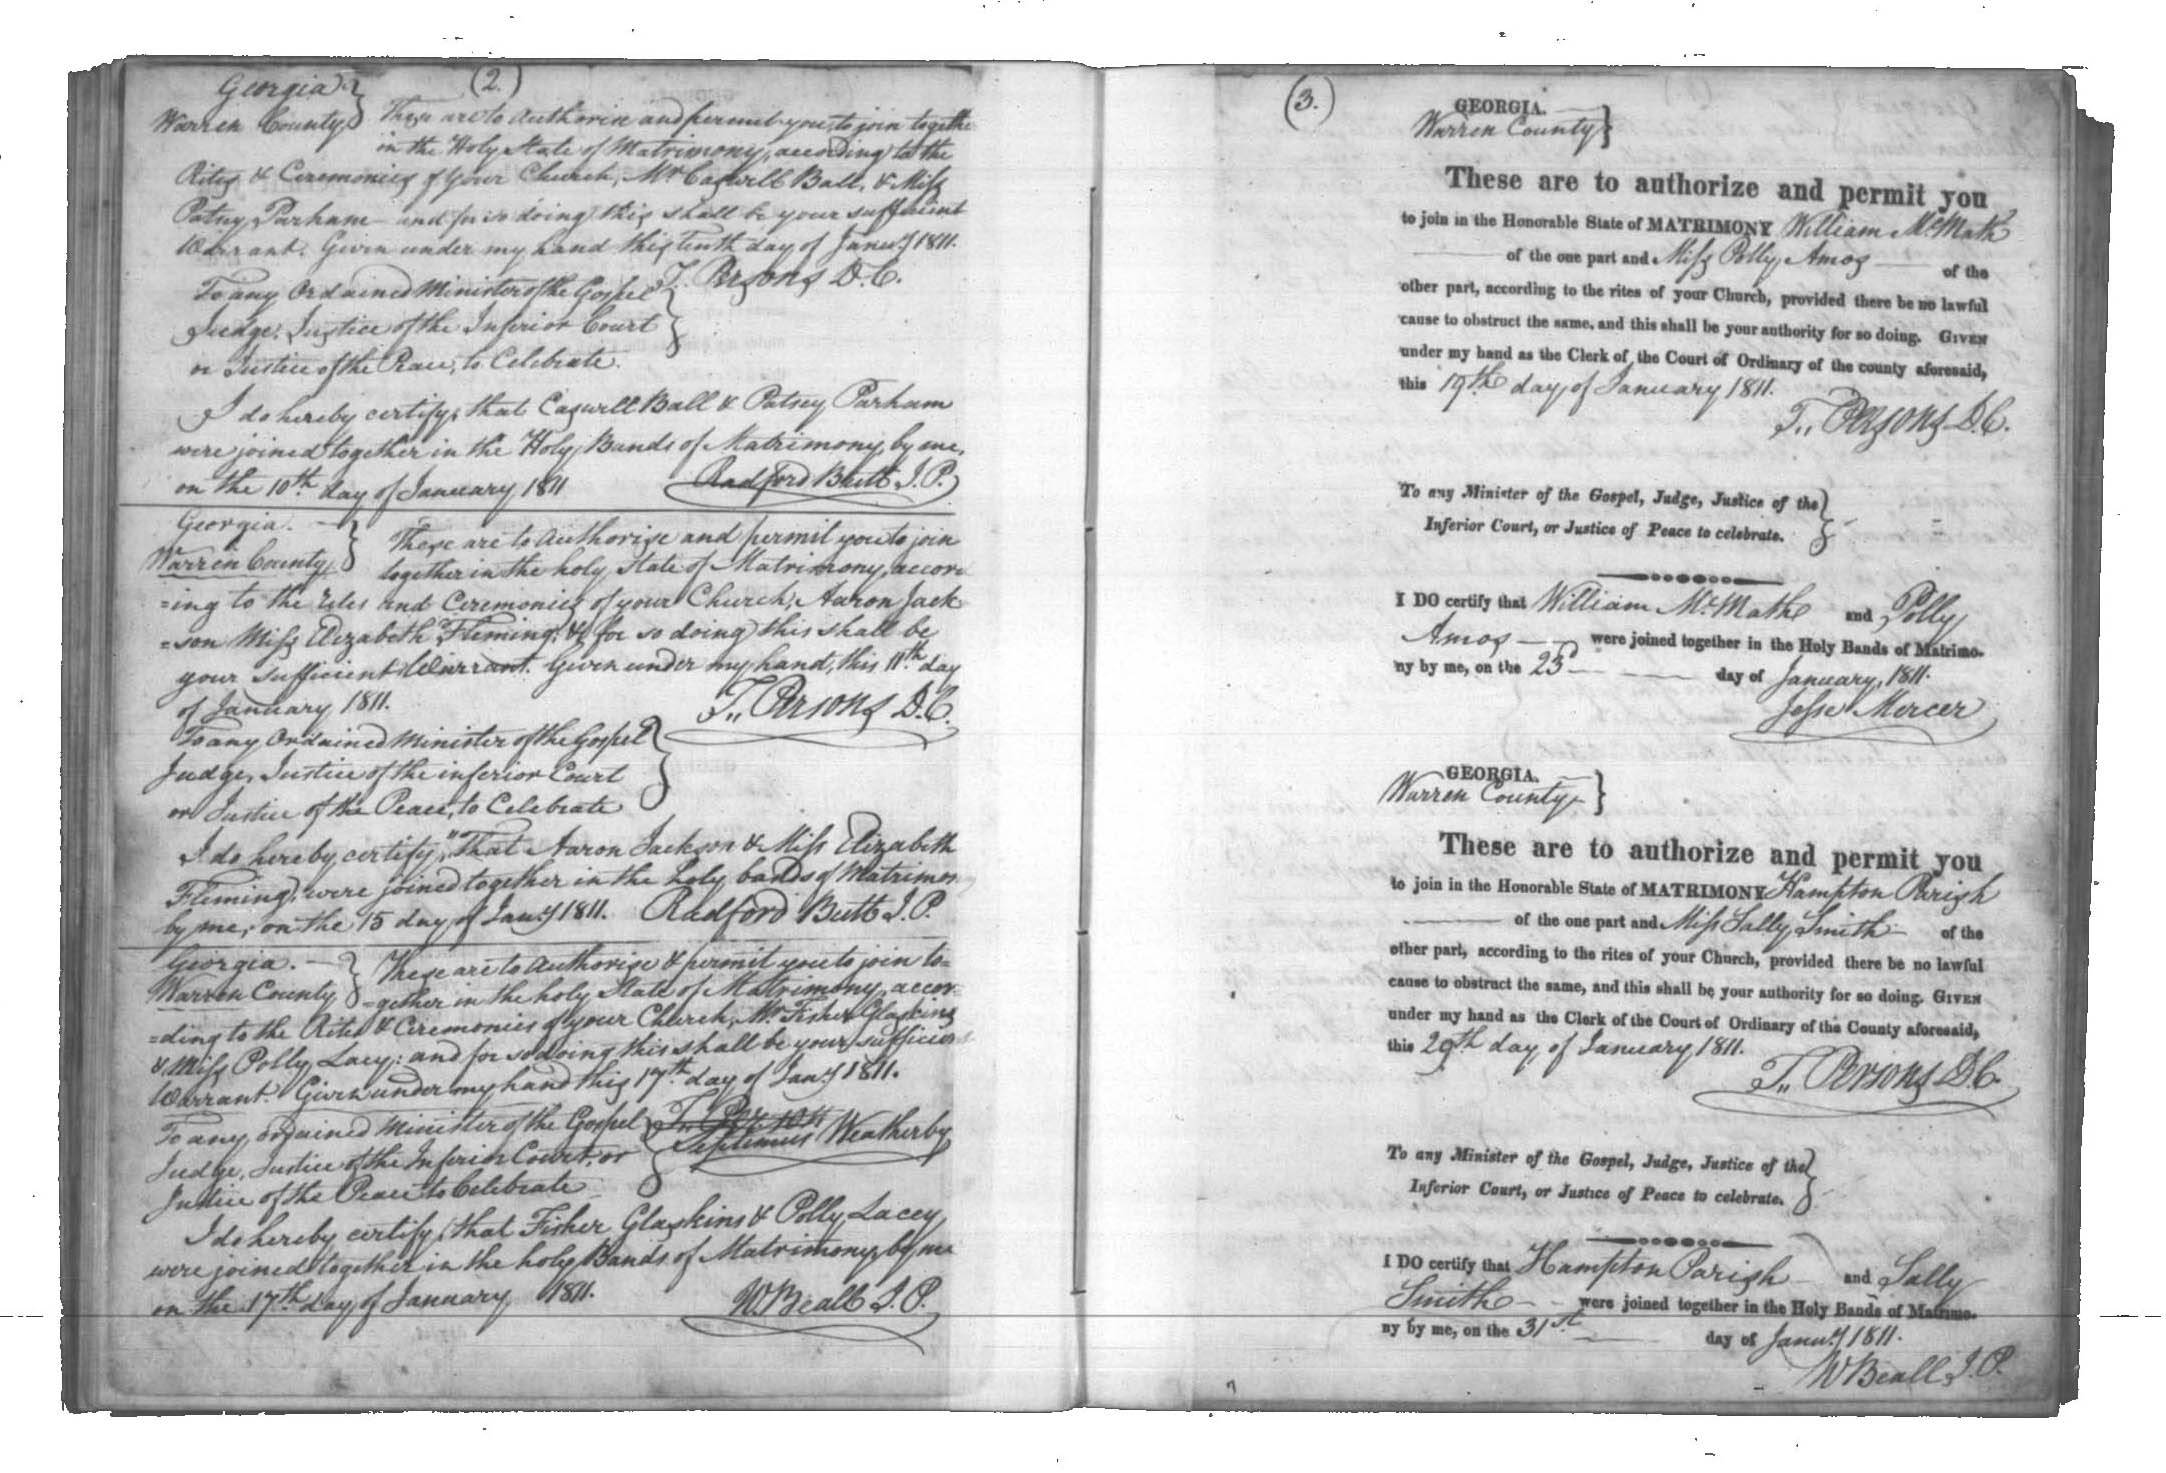 (2.)
Georgia.
Warren County
These are to Authorise and permit you, to join togethe
in the Holy State of Matrimony, according to the
Rites & Ceremonies of your Church, Mr Caswell Ball, & Miss
Patsey Parham and for so doing this shall be your sufficient
Warrant. Given under my hand this Tenth day of Janury 1811.
T. Persons D.C.
To any Ordained Minister of the Gospel
Judge, Justice of the Inferior Court
or Justice of the Peace, to Celebrate.
I do hereby certify, that Caswell Ball & Patsey Parham
were joined together in the Holy Bands of Matrimony by me,
on the 10th day of January 1811
Radford Butt J.P.
Georgia.
Warren County
These are to Authorise and permit you to join
together in the holy State of Matrimony, accord
=ing to the rites and Ceremonies of your Church, Aaron Jack
=son Miss Elizabeth Fleming, & for so doing this shall be
your sufficient Warrant. Given under my hand, this 11th day
of January 1811.
T,, Persons D.C.
To any Ordained Minister of the Gospel
Judge, Justice of the inferior Court
or Justice of the Peace, to Celebrate
I do hereby certify, "That Aaron Jackson & Miss Elizabeth
Fleming, were joined together in the holy bands of Matrimon
by me, on the 15 day of Jany 1811. Radford Butt J.P.
Georgia.
Warren County
These are to Authorise & permit you to join to=
=gether in the holy State of Matrimony, accor=
=ding to the Rites & Ceremonies of your Church, Mr Fisher Glaskins
& Miss Polly Lacy: and for so doing this shall be your sufficien
Warrant. Given under my hand this 17th day of Jany 1811.
Septimus Weatherby
To any ordained Minister of the Gospel
Judge, Justice of the Inferior Court, or
Justice of the Peace to Celebrate
I do hereby certify, that Fisher Glaskins & Polly Lacey
were joined together in the holy Bands of Matrimony, by me
on the 17th day of January 1811.
W Beall J.P.
(3.)
GEORGIA.
Warren County
These are to authorize and permit you
to join in the Honorable State of MATRIMONY William McMath
of the one part and Miss Polly Amos of the
other part, according to the rites of your Church, provided there be no lawful
cause to obstruct the same, and this shall be your authority for so doing. GIVEN
under my hand as the Clerk of the Court of Ordinary of the county aforesaid,
this 19th day of January 1811.
T,, Persons D.C.
To any Minister of the Gospel, Judge, Justice of the
Inferior Court, or Justice of Peace to celebrate.
I DO certify that William McMath and Polly
Amos were joined together in the Holy Bands of Matrimo-
ny by me, on the 23d day of January, 1811.
Jesse Mercer
GEORGIA.
Warren County
These are to authorize and permit you
to join in the Honorable State of MATRIMONY Hampton Parish
of the one part and Miss Sally Smith of the
other part, according to the rites of your Church, provided there be no lawful
cause to obstruct the same, and this shall be your authority for so doing. GIVEN
under my hand as the Clerk of the Court of Ordinary of the County aforesaid,
this 29th day of January 1811.
T,, Persons D.C.
To any Minister of the Gospel, Judge, Justice of the
Inferior Court, or Justice of Peace to celebrate.
I DO certify that Hampton Parish and Sally
Smith were joined together in the Holy Bands of Matrimo-
ny by me, on the 31st day of Janury 1811.
W Beall J.P.